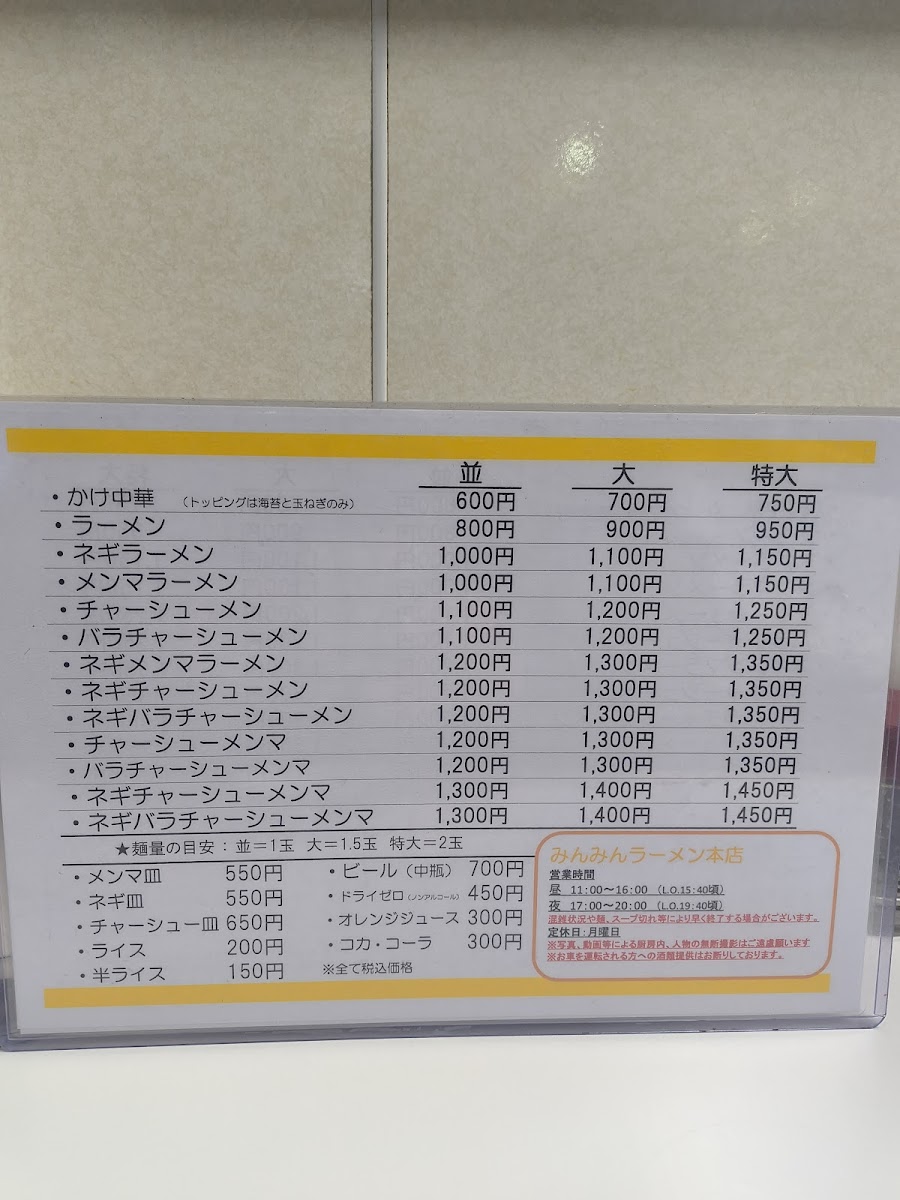 並 大 特大
・かけ中華 （トッピングは海苔と玉ねぎのみ） 600円 700円 750円
・ラーメン 800円 900円 950円
・ネギラーメン 1,000円 1,100円 1,150円
・メンマラーメン 1,000円 1,100円 1,150円
・チャーシューメン 1,100円 1,200円 1,250円
・バラチャーシューメン 1,100円 1,200円 1,250円
・ネギメンマラーメン 1,200円 1,300円 1,350円
・ネギチャーシューメン 1,200円 1,300円 1,350円
・ネギバラチャーシューメン 1,200円 1,300円 1,350円
・チャーシューメンマ 1,200円 1,300円 1,350円
・バラチャーシューメンマ 1,200円 1,300円 1,350円
・ネギチャーシューメンマ 1,300円 1,400円 1,450円
・ネギバラチャーシューメンマ 1,300円 1,400円 1,450円
★麺量の目安：並＝1玉 大＝1.5玉 特大＝2玉
・メンマ皿 550円
・ネギ皿 550円
・チャーシュー皿 650円
・ライス 200円
・半ライス 150円
・ビール（中瓶） 700円
・ドライゼロ（ノンアルコール） 450円
・オレンジジュース 300円
・コカ・コーラ 300円
※全て税込価格
みんみんラーメン本店
営業時間
昼 11:00〜16:00 （L.O.15:40頃）
夜 17:00〜20:00 （L.O.19:40頃）
混雑状況や麺、スープ切れ等により早く終了する場合がございます。
定休日：月曜日
※写真、動画等による厨房内、人物の無断撮影はご遠慮願います
※お車を運転される方への酒類提供はお断りしております。